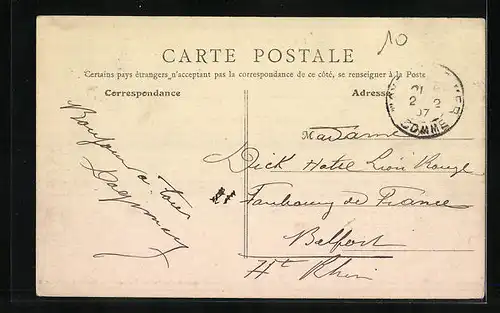 10
CARTE POSTALE
Certains pays étrangers n'acceptant pas la correspondance de ce côté, se renseigner à la Poste
Correspondance
Adresse
21
2 2
07
SOMME
Bonjour a tous
Madame
Dick Hotel Lion Rouge
Faubourg de France
Belfort
Ht Rhin